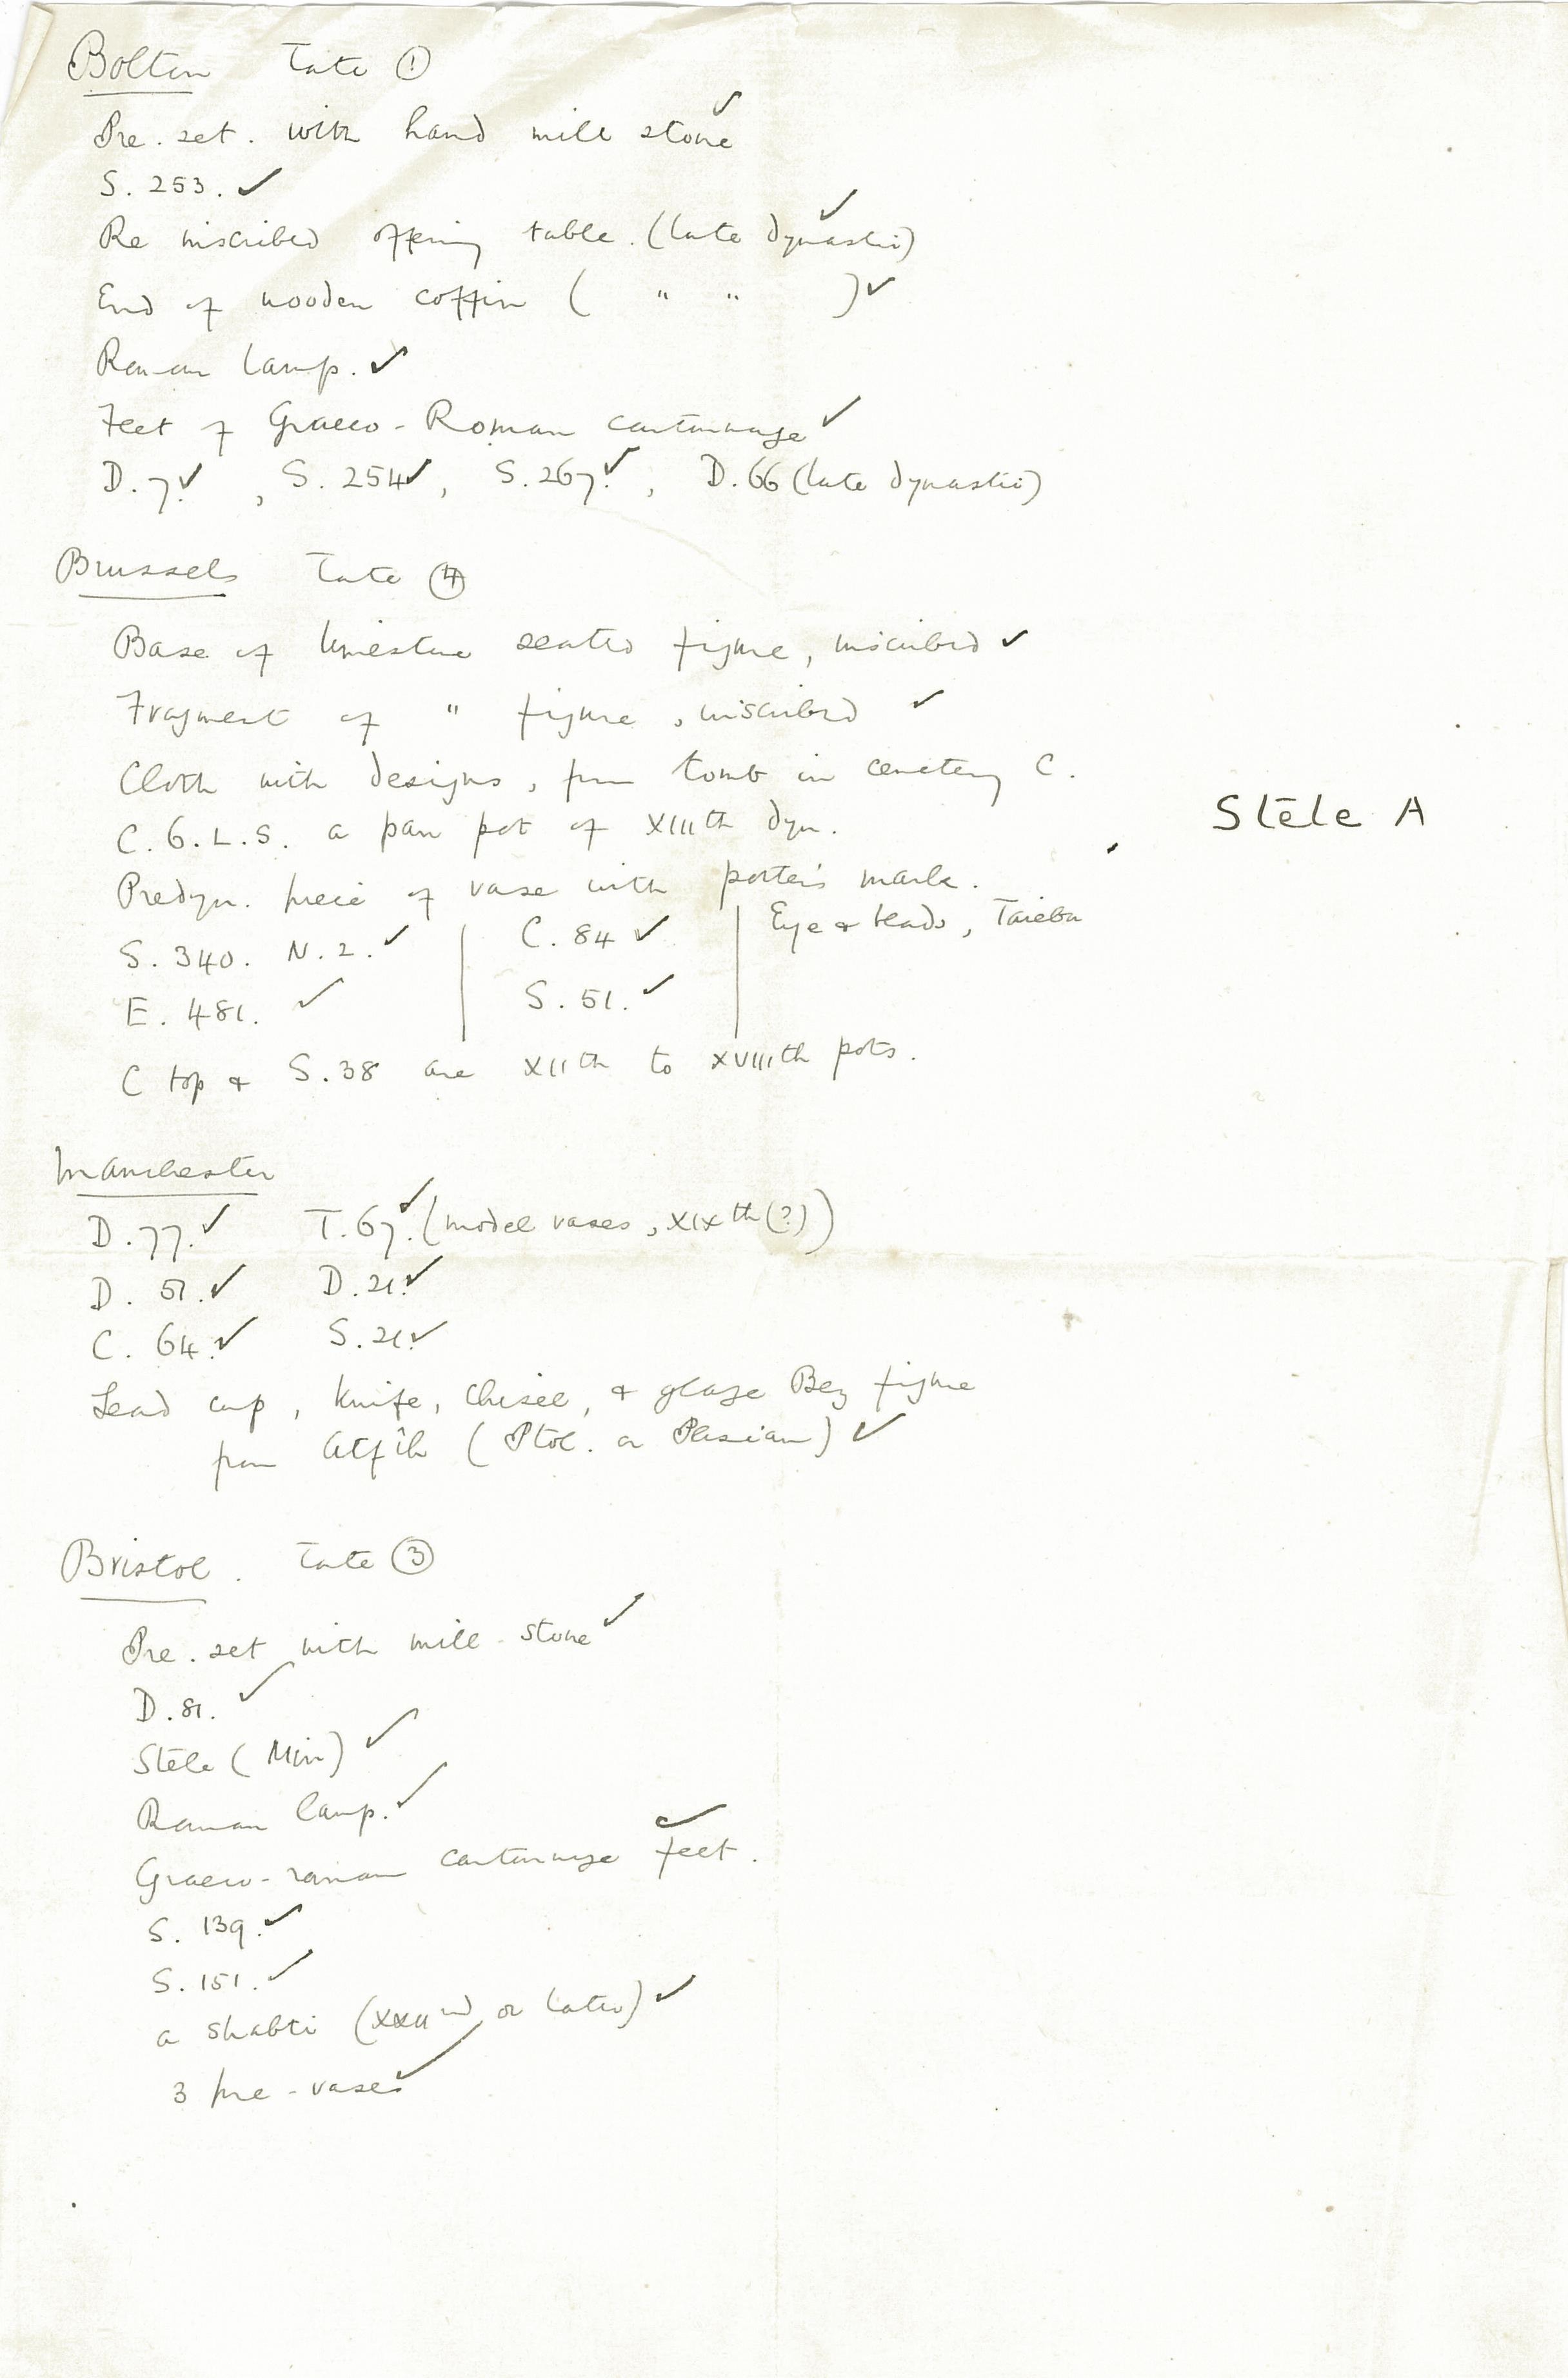 Bolton Tate ①
Pre. set. with hand mill stone ✓
S. 253. ✓
Re inscribed offering table. (late dynastic) ✓
End of wooden coffin ( " " ) ✓
Roman lamp. ✓
Feet of Graeco-Roman cartonnage ✓
D. 7. ✓, S. 254 ✓, S. 267. ✓, D. 66 (late dynastic)
Brussels Tate ④
Base of limestone seated figure, inscribed ✓
Fragment of " figure, inscribed ✓
Cloth with designs, from tomb in cemetery C.
Stele A
C. 6. L.S. a pan pot of XIIIth dyn.
Predyn. piece of vase with potter's mark. ✓
S. 340. N. 2. ✓ | C. 84 ✓ | Eye & beads,
E. 481. ✓ | S. 51. ✓ |
C top & S. 38 are XIIth to XVIIIth pots.
Manchester
D. 77. ✓ T. 67. ✓ (model vases, XIXth (?))
D. 51. ✓ D. 21. ✓
C. 64. ✓ S. 21. ✓
Lead cup, knife, chisel, & glaze Bez figure
from Atfih (Ptol. or Persian) ✓
Bristol. Tate ③
Pre. set with mill-stone ✓
D. 81. ✓
Stele (Min) ✓
Roman lamp. ✓
Graeco-roman cartonnage feet. ✓
S. 139. ✓
S. 151. ✓
a shabti (XXIInd or later) ✓
3 pre-vases ✓